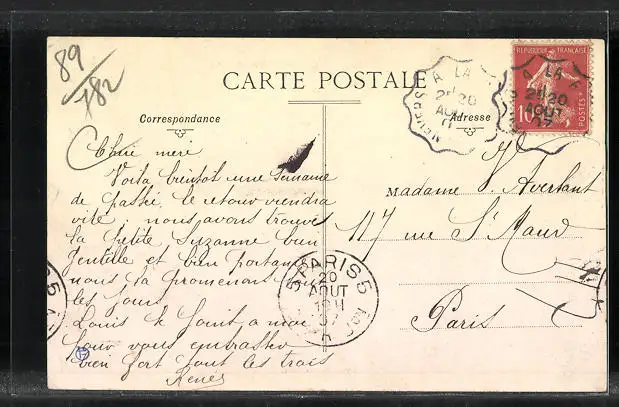 89
782
CARTE POSTALE
Correspondance
Adresse
REPUBLIQUE FRANÇAISE
10
POSTES
A LA
20
AOUT
A LA
20
AOUT
Chère mère
Voila bientot une semaine
de passée, le retour viendra
vite, nous avons trouvé
la petite Suzanne bien
gentille et bien portante
nous la promenons tous
les jours
Louis se joint a moi
pour vous embrasser
bien fort tout les trois
Renée
Madame V. Averlant
117 rue St Maur
Paris
PARIS 5
20
AOUT
07